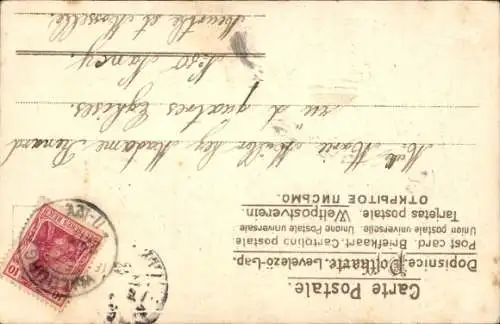 Carte Postale.
Dopisnice. Postkarte. Levelező-Lap.
Post card. Briefkaart. Cartolina postale
Union postale universelle. Unione Postale universale
Targetas postale. Weltpostverein.
ОТКРЫТОЕ ПИСЬМО.
Melle Marie Müller chez Madame Renard
rue des quatres Eglises.
No 80 Nancy.
Meurthe et Moselle.
10